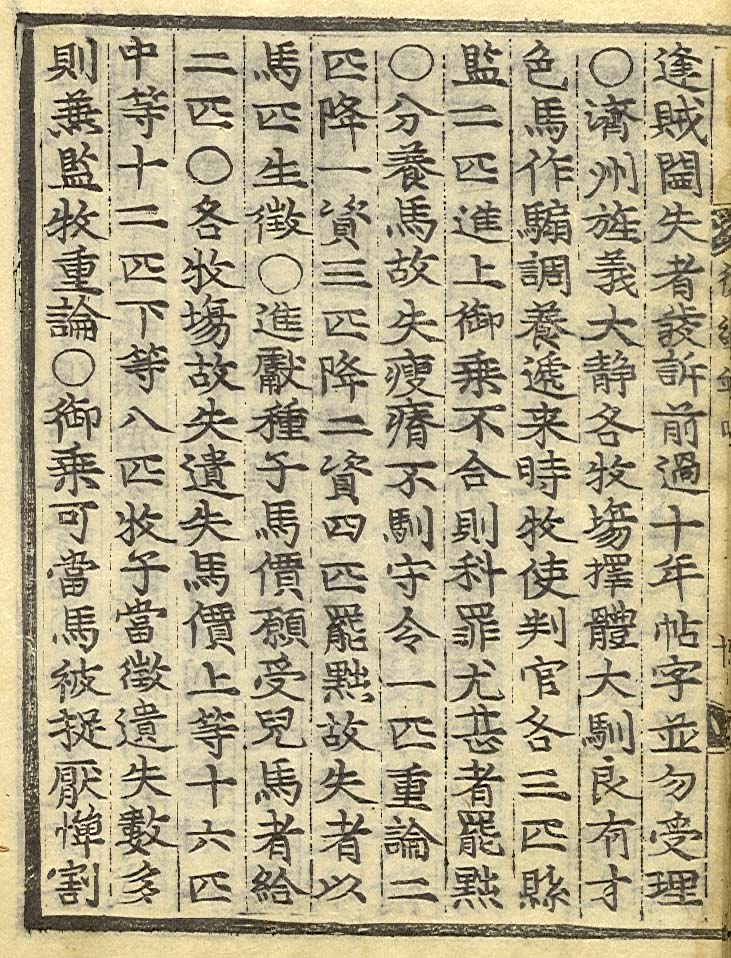 逢賊閪失者發訴前過十年帖字並勿受理
○濟州旌義大静各牧塲擇體大馴良有才
色馬作騸調養遞来時牧使判官各三匹縣
監二匹進上御乘不合則科罪尤甚者罷黜
○分養馬故失瘦瘠不馴守令一匹重論二
匹降一資三匹降二資四匹罷黜故失者以
馬匹生徵○進獻種子馬價願受兒馬者給
二匹○各牧塲故失遺失馬價上等十六匹
中等十二匹下等八匹牧子當徵遺失數多
則兼監牧重論○御乘可當馬被捉厭憚割